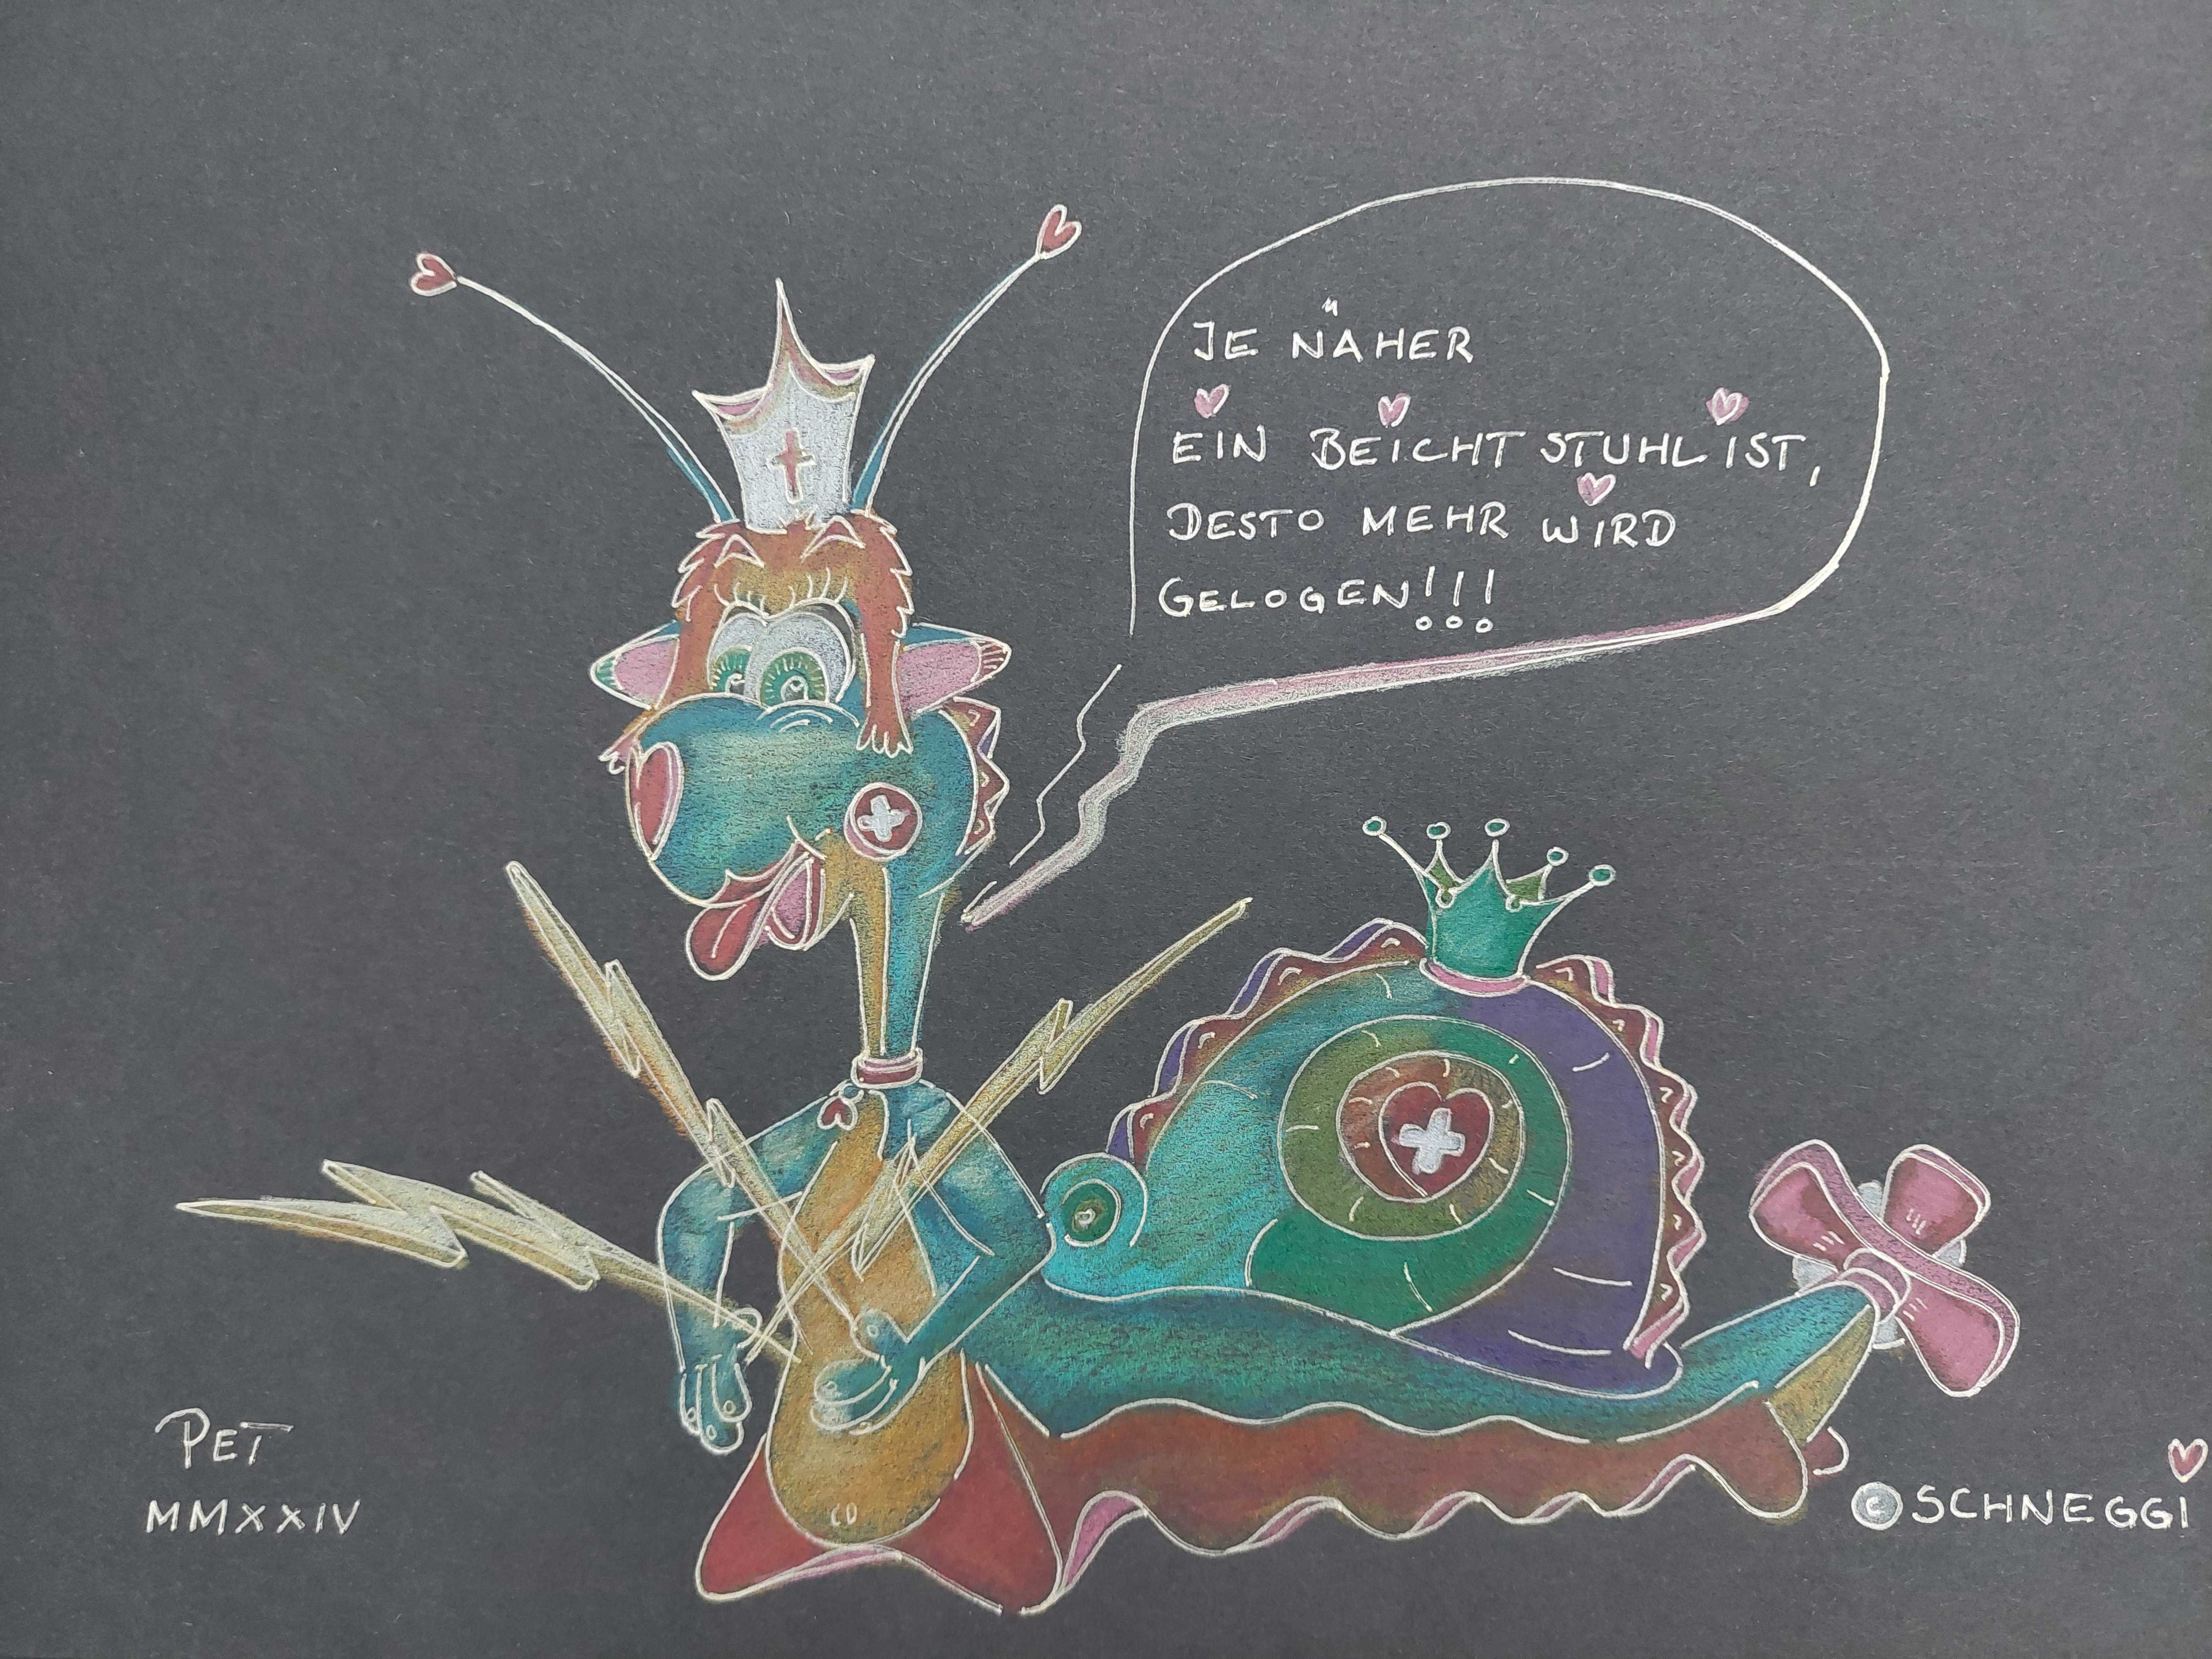 JE NÄHER
EIN BEICHTSTUHL IST,
DESTO MEHR WIRD
GELOGEN!!!
PET
MMXXIV
© SCHNEGGI